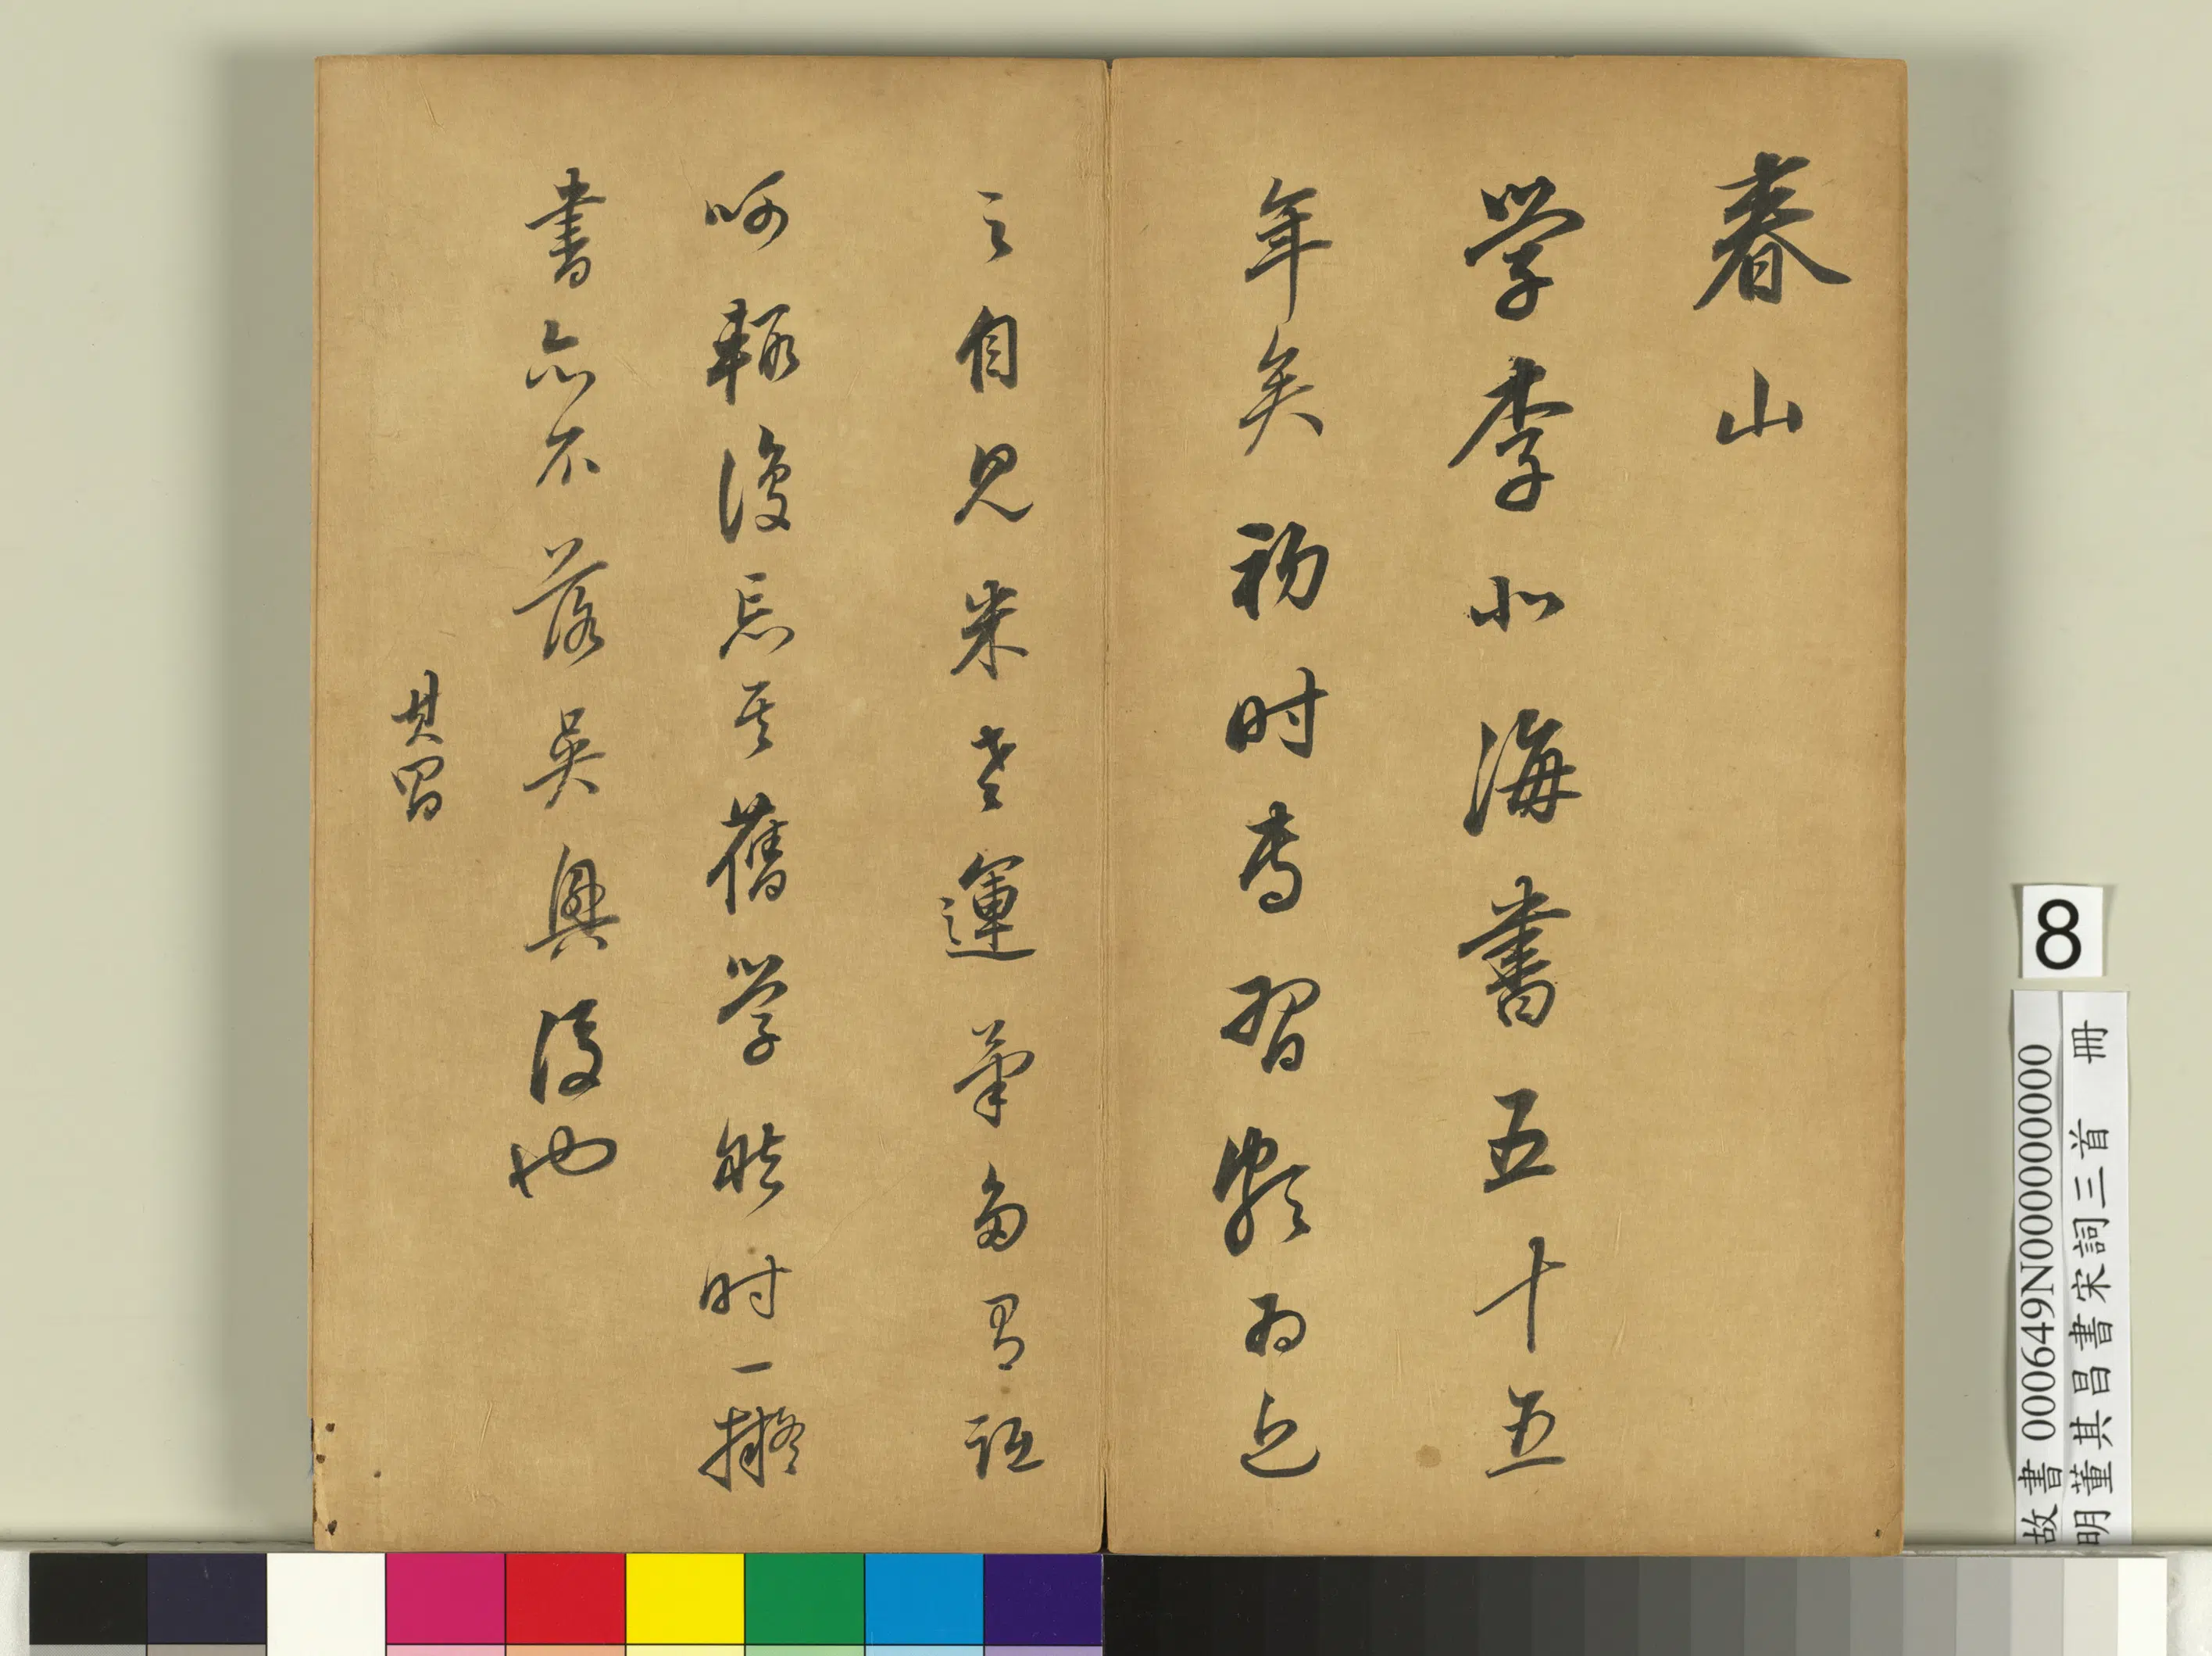 春山
學李北海書五十五
年矣初時專習頗為近
之自見米老運筆多有詆
呵輒復忘其舊學然時一擬
書亦不落吳興後也
其昌
8
故書 000649N000000000
明董其昌書宋詞三首 冊